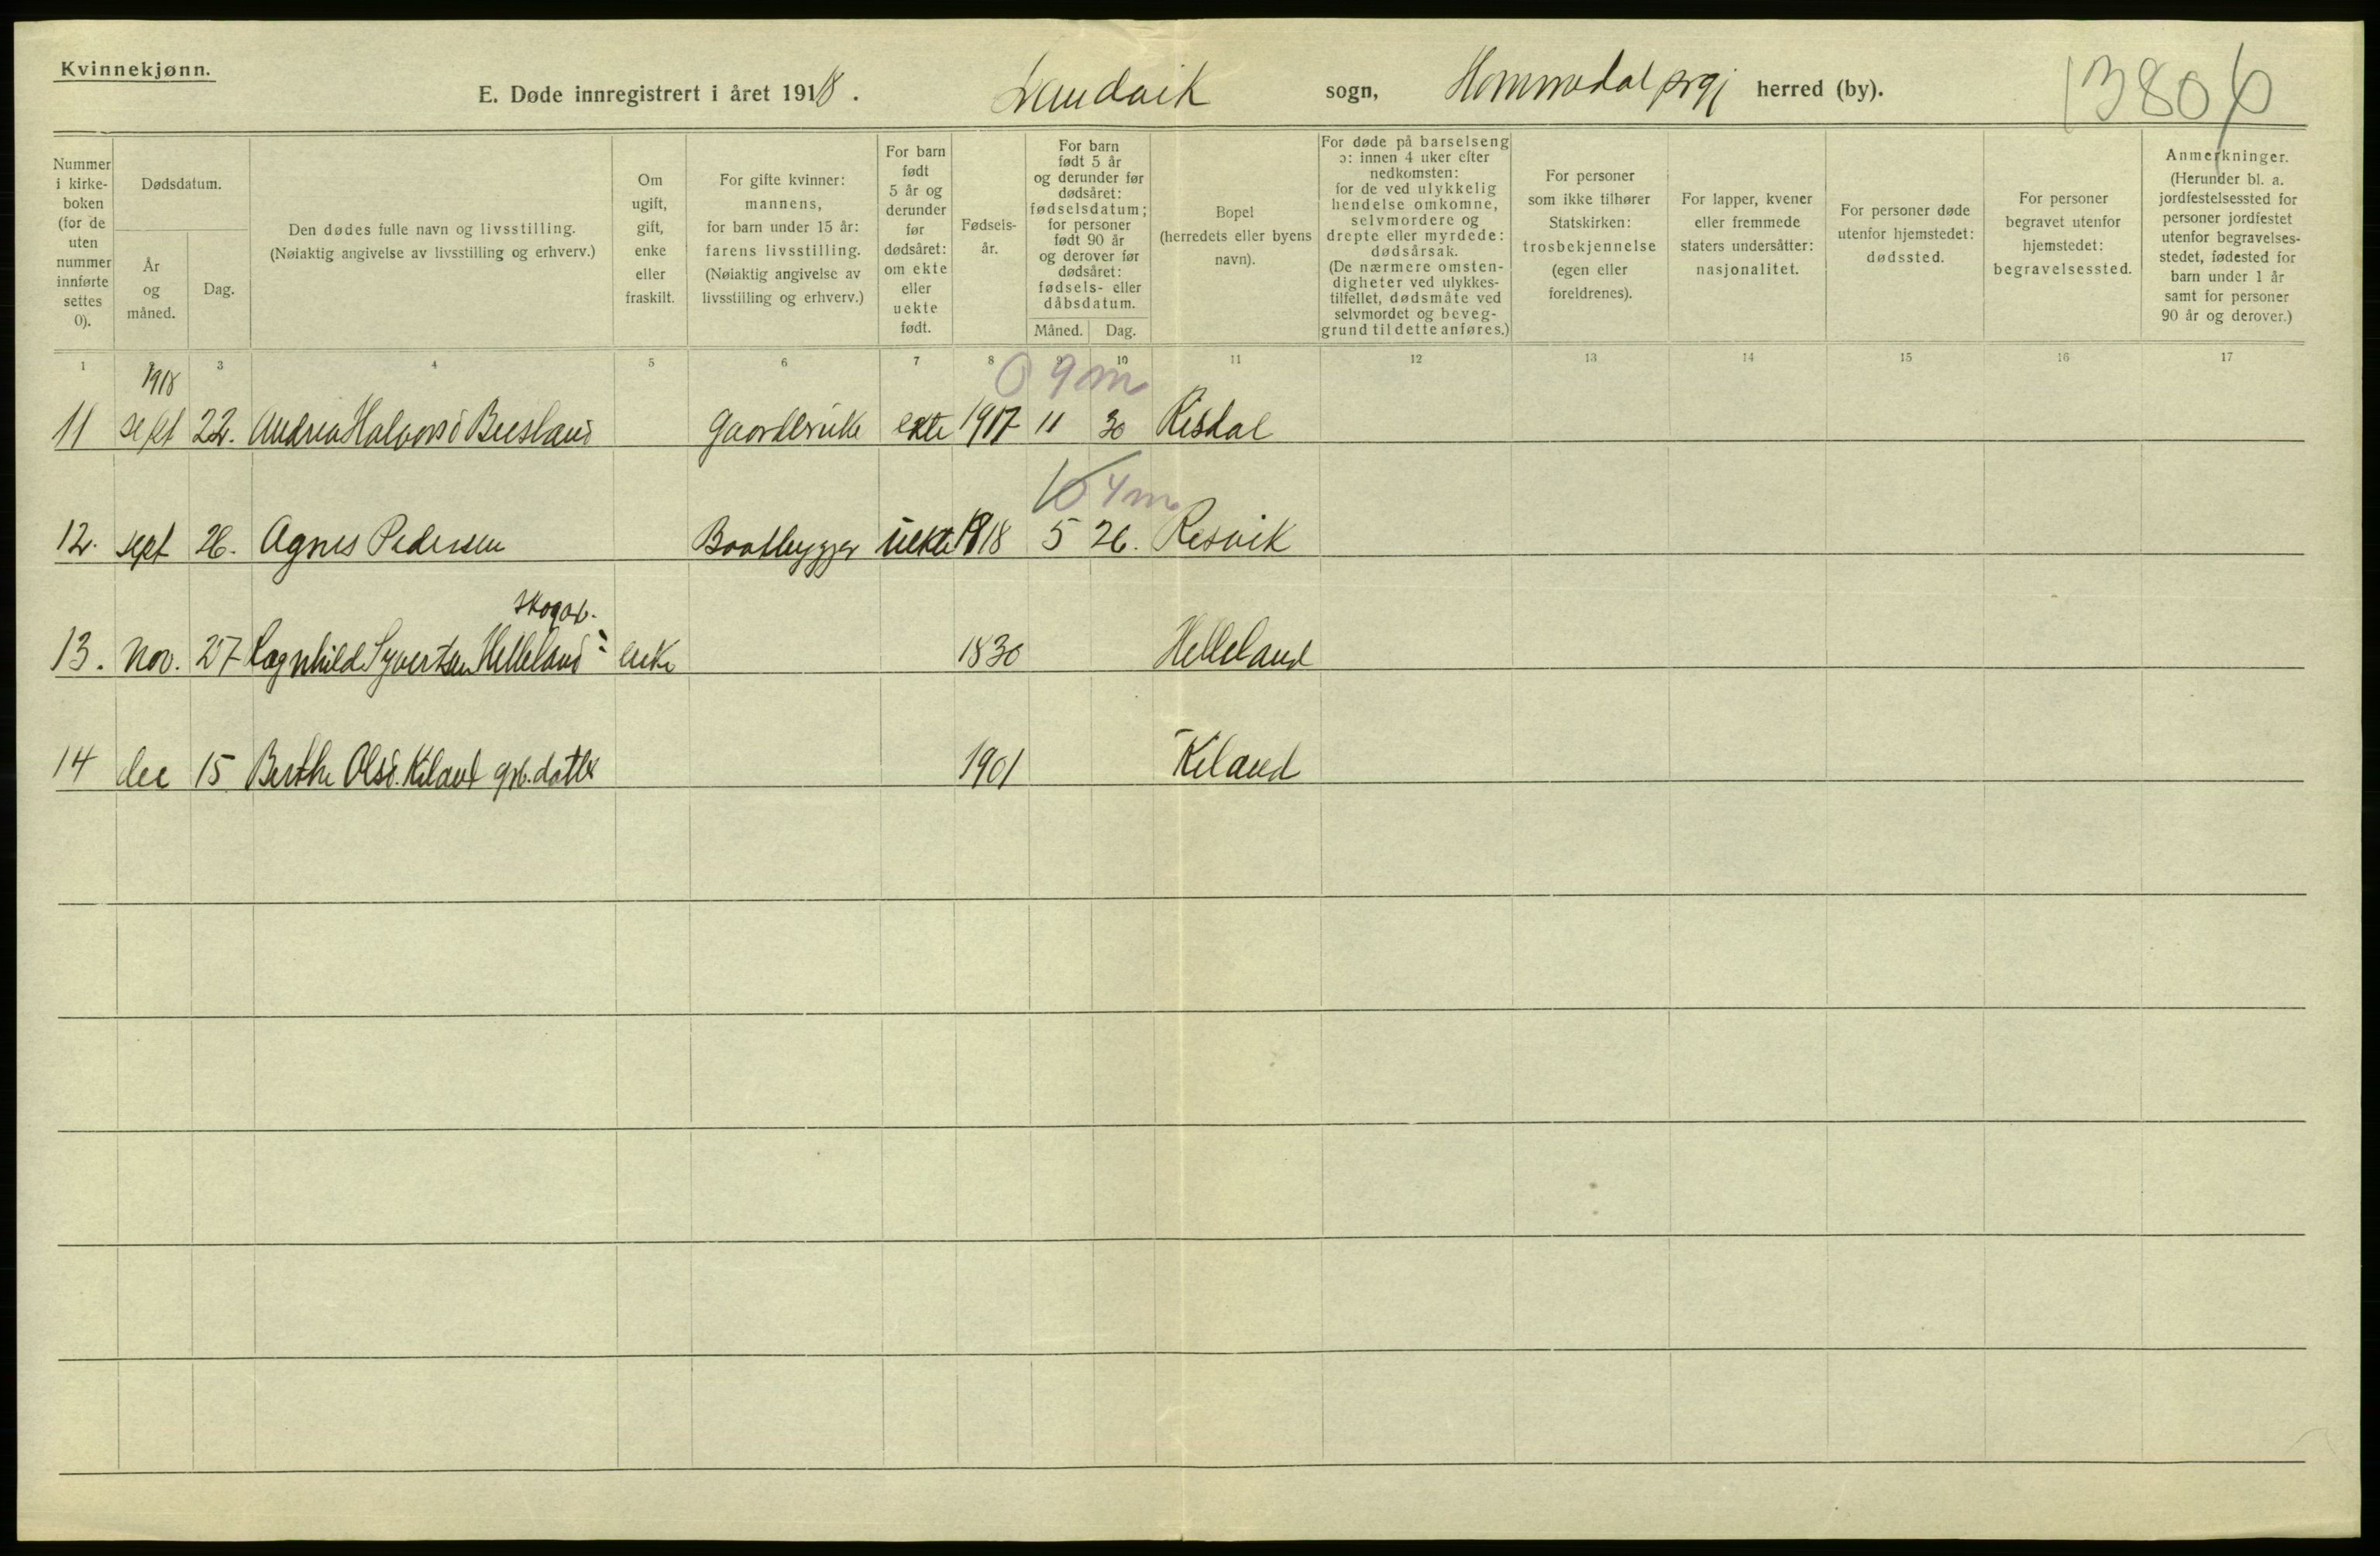 Kvinnekjønn.
E. Døde innregistrert i året 1918. Landvik sogn, Hommedal prgj herred (by).
1380
Nummer i kirke- boken (for de uten nummer innførte settes 0).
Dødsdatum.
År og måned.
Dag.
Den dødes fulle navn og livsstilling.
(Nøiaktig angivelse av livsstilling og erhverv.)
Om ugift, gift, enke eller fraskilt.
For gifte kvinner: mannens, for barn under 15 år: farens livsstilling. (Nøiaktig angivelse av livsstilling og erhverv.)
For barn født 5 år og derunder før dødsåret: om ekte eller uekte født.
Fødsels- år.
For barn født 5 år og derunder før dødsåret: fødselsdatum; for personer født 90 år og derover før dødsåret: fødsels- eller dåbsdatum.
Måned. Dag.
Bopel (herredets eller byens navn).
For døde på barselseng ɔ: innen 4 uker efter nedkomsten: for de ved ulykkelig hendelse omkomne, selvmordere og drepte eller myrdede: dødsårsak. (De nærmere omsten- digheter ved ulykkes- tilfellet, dødsmåte ved selvmordet og beveg- grund til dette anføres.)
For personer som ikke tilhører Statskirken: trosbekjennelse (egen eller foreldrenes).
For lapper, kvener eller fremmede staters undersåtter: nasjonalitet.
For personer døde utenfor hjemstedet: dødssted.
For personer begravet utenfor hjemstedet: begravelsessted.
Anmerkninger. (Herunder bl. a. jordfestelsessted for personer jordfestet utenfor begravelses- stedet, fødested for barn under 1 år samt for personer 90 år og derover.)
1 3 4 5 6 7 8 9 10 11 12 13 14 15 16 17
1918
0 9 m
11 sept 22. Andrea Halvorsd Beesland ekte 1917 11 30 Risdal
0 4 m
12. sept 26. Agnes Pedersen Baatbygger uekte 1918 5 26. Resvik
skogar.
13. nov. 27 Ragnhild Syvertsen Helleland enke 1830 Helleland
14 dec 15 Berthe Olsd. Kiland grb. datter 1901 Kiland